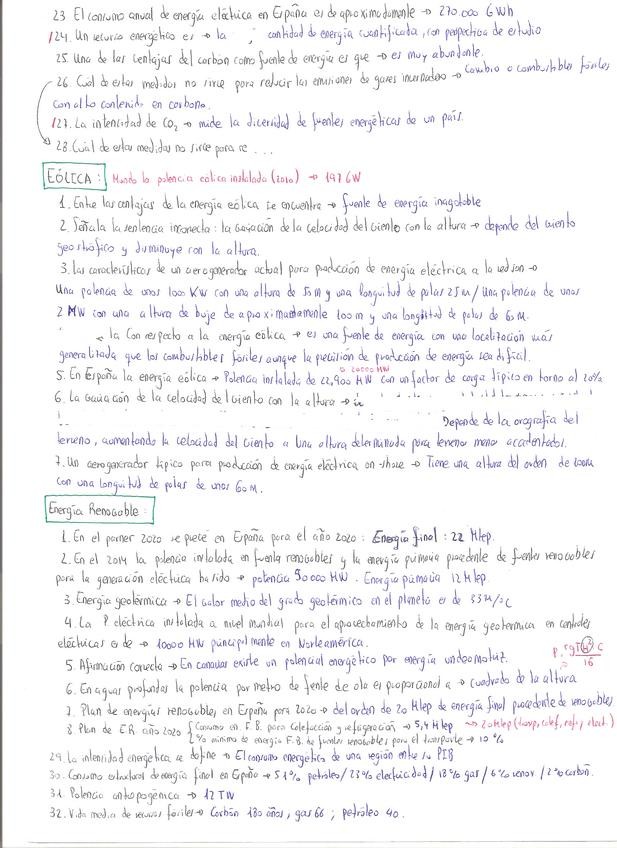 23. El consumo anual de energía eléctrica en España es de aproximadamente → 270.000 GWh
124. Un recurso energético es → la ; cantidad de energía cuantificada, con perspectiva de estudio
25. Una de las ventajas del carbón como fuente de energía es que → es muy abundante.
26. Cuál de estas medidas no sirve para reducir las emisiones de gases invernadero → Cambio a combustibles fósiles
con alto contenido en carbono.
127. La intensidad de CO2 → mide la diversidad de fuentes energéticas de un país.
28. Cuál de estas medidas no sirve para re ...
EÓLICA: Mundo la potencia eólica instalada (2010) → 197 GW
1. Entre las ventajas de la energía eólica se encuentra → fuente de energía inagotable
2. Señala la sentencia incorrecta: la variación de la velocidad del viento con la altura → depende del viento
geostrófico y disminuye con la altura.
3. Las características de un aerogenerador actual para producción de energía eléctrica a la red son →
Una potencia de unos 1000 KW con una altura de 55 m y una longuitud de palas 25 m / Una potencia de unos
2 MW con una altura de buje de aproximadamente 100 m y una longuitud de palas de 60 m.
la Con respecto a la energía eólica → es una fuente de energía con una localización más
generalizada que los combustibles fósiles aunque la precisión de producción de energía sea difícil.
→ 20000 MW
5. En España la energía eólica → Potencia instalada de 22,900 MW con un factor de carga típico en torno al 20%
6. La variación de la velocidad del viento con la altura →
Depende de la orografía del
terreno, aumentando la velocidad del viento a una altura determinada para terrenos menos accidentados.
7. Un aerogenerador típico para producción de energía eléctrica on-shore → Tiene una altura del orden de 100m
con una longuitud de palas de unos 60 m.
Energía Renovable:
1. En el parner 2020 se prevé en España para el año 2020: Energía final: 22 Mtep.
2. En el 2014 la potencia instalada en fuente renovables y la energía primaria procedente de fuentes renovables
para la generación eléctrica ha sido → potencia 50000 MW. Energía primaria 12 Mtep.
3. Energía geotérmica → El valor medio del grado geotérmico en el planeta es de 33 m/°C
4. La P eléctrica instalada a nivel mundial para el aprovechamiento de la energía geotérmica en centrales
eléctricas es de → 10000 MW principalmente en Norteamérica.
5. Afirmación correcta → En canarias existe un potencial energético por energía undeomotriz.
6. En aguas profundas la potencia por metro de frente de ola es proporcional a → cuadrado de la altura
7. Plan de energías renovables en España para 2020 → del orden de 20 Mtep de energía final procedente de renovables
8 Plan de ER año 2020 { Consumo en F.B. para Calefacción y refrigeración → 5,4 Mtep → 20 Mtep (transp, calef, refr, elect.)
% mínimo de energía F.B. de fuentes renovables para el transporte → 10%
29. La intensidad energética se define → El consumo energético de una región entre su PIB
30. Consumo estructural de energía final en España → 51% petróleo / 23% electricidad / 18% gas / 6% renov / 2% carbón.
31. Potencia antropogénica → 12 TW
32. Vida media de recursos fósiles → Carbón 180 años, gas 66; petróleo 40.